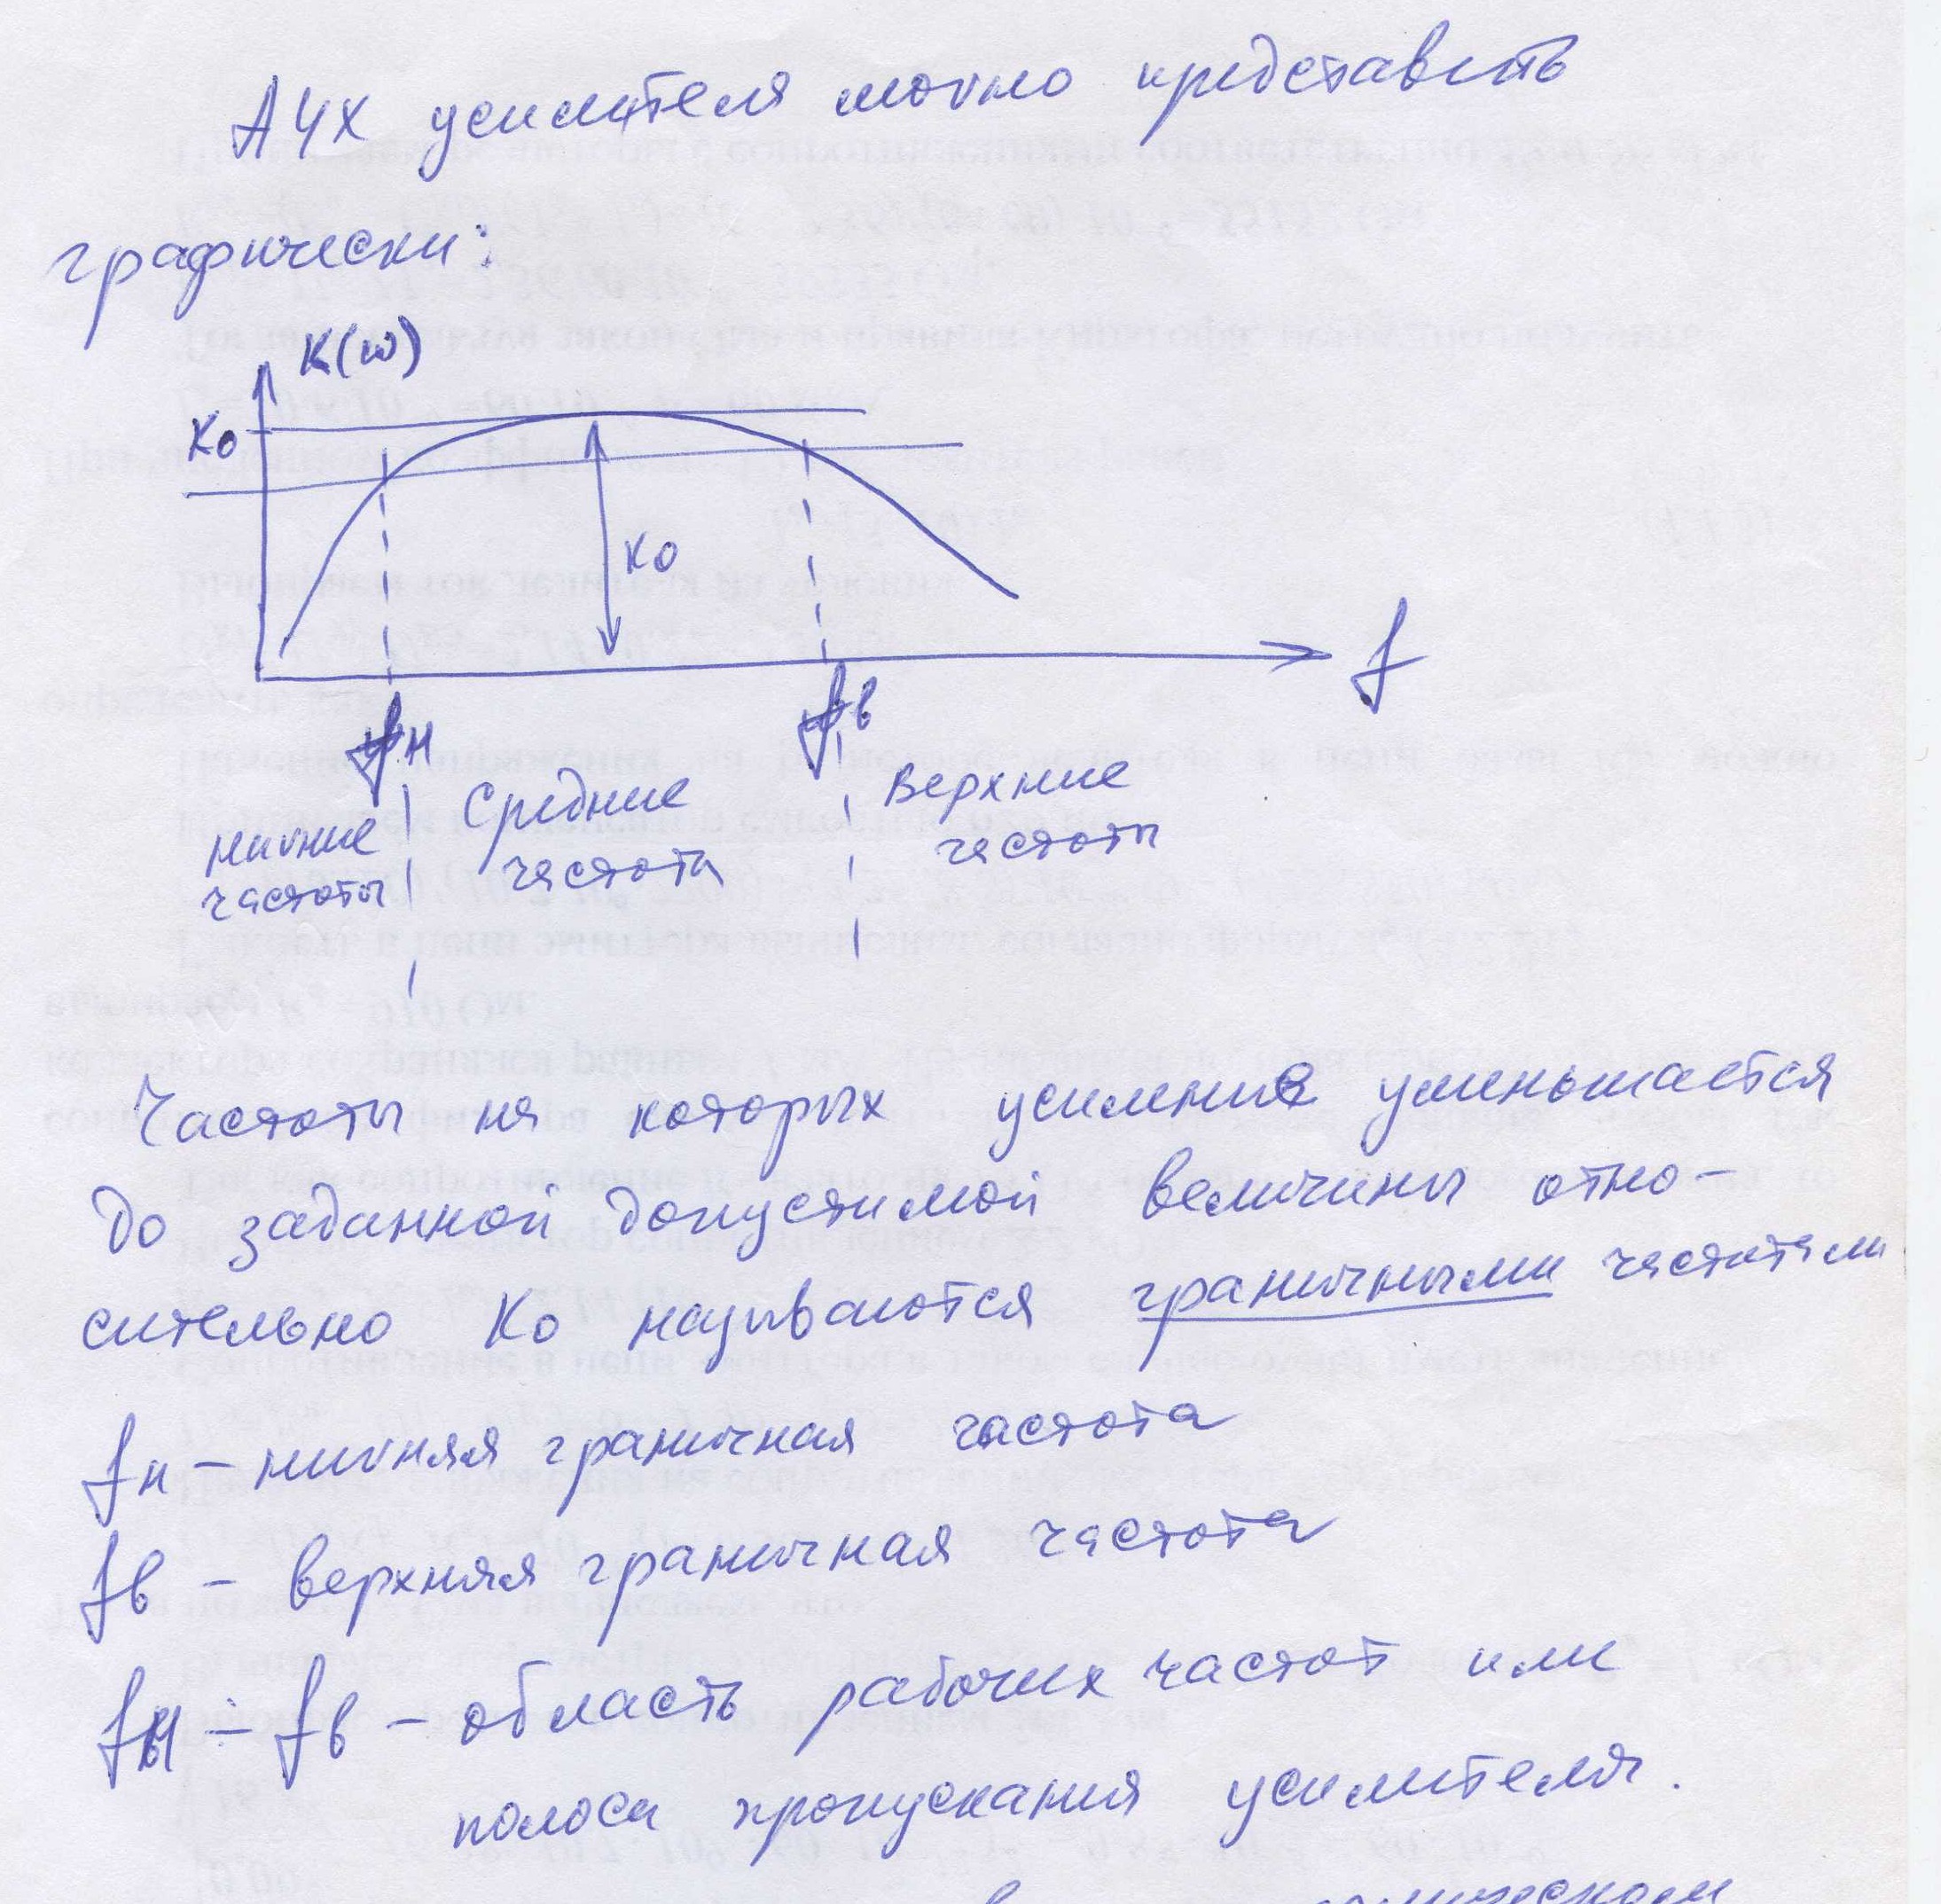 АЧХ усилителя можно представить
графически:
K(ω)
K0
K0
f
fн
fв
нижние
частоты
Средние
частота
Верхние
частоты
Частоты на которых усиление уменьшается
до заданной допустимой величины отно-
сительно K0 называются граничными частотами
fн – нижняя граничная частота
fв – верхняя граничная частота
fн ÷ fв – область рабочих частот или
полоса пропускания усилителя.